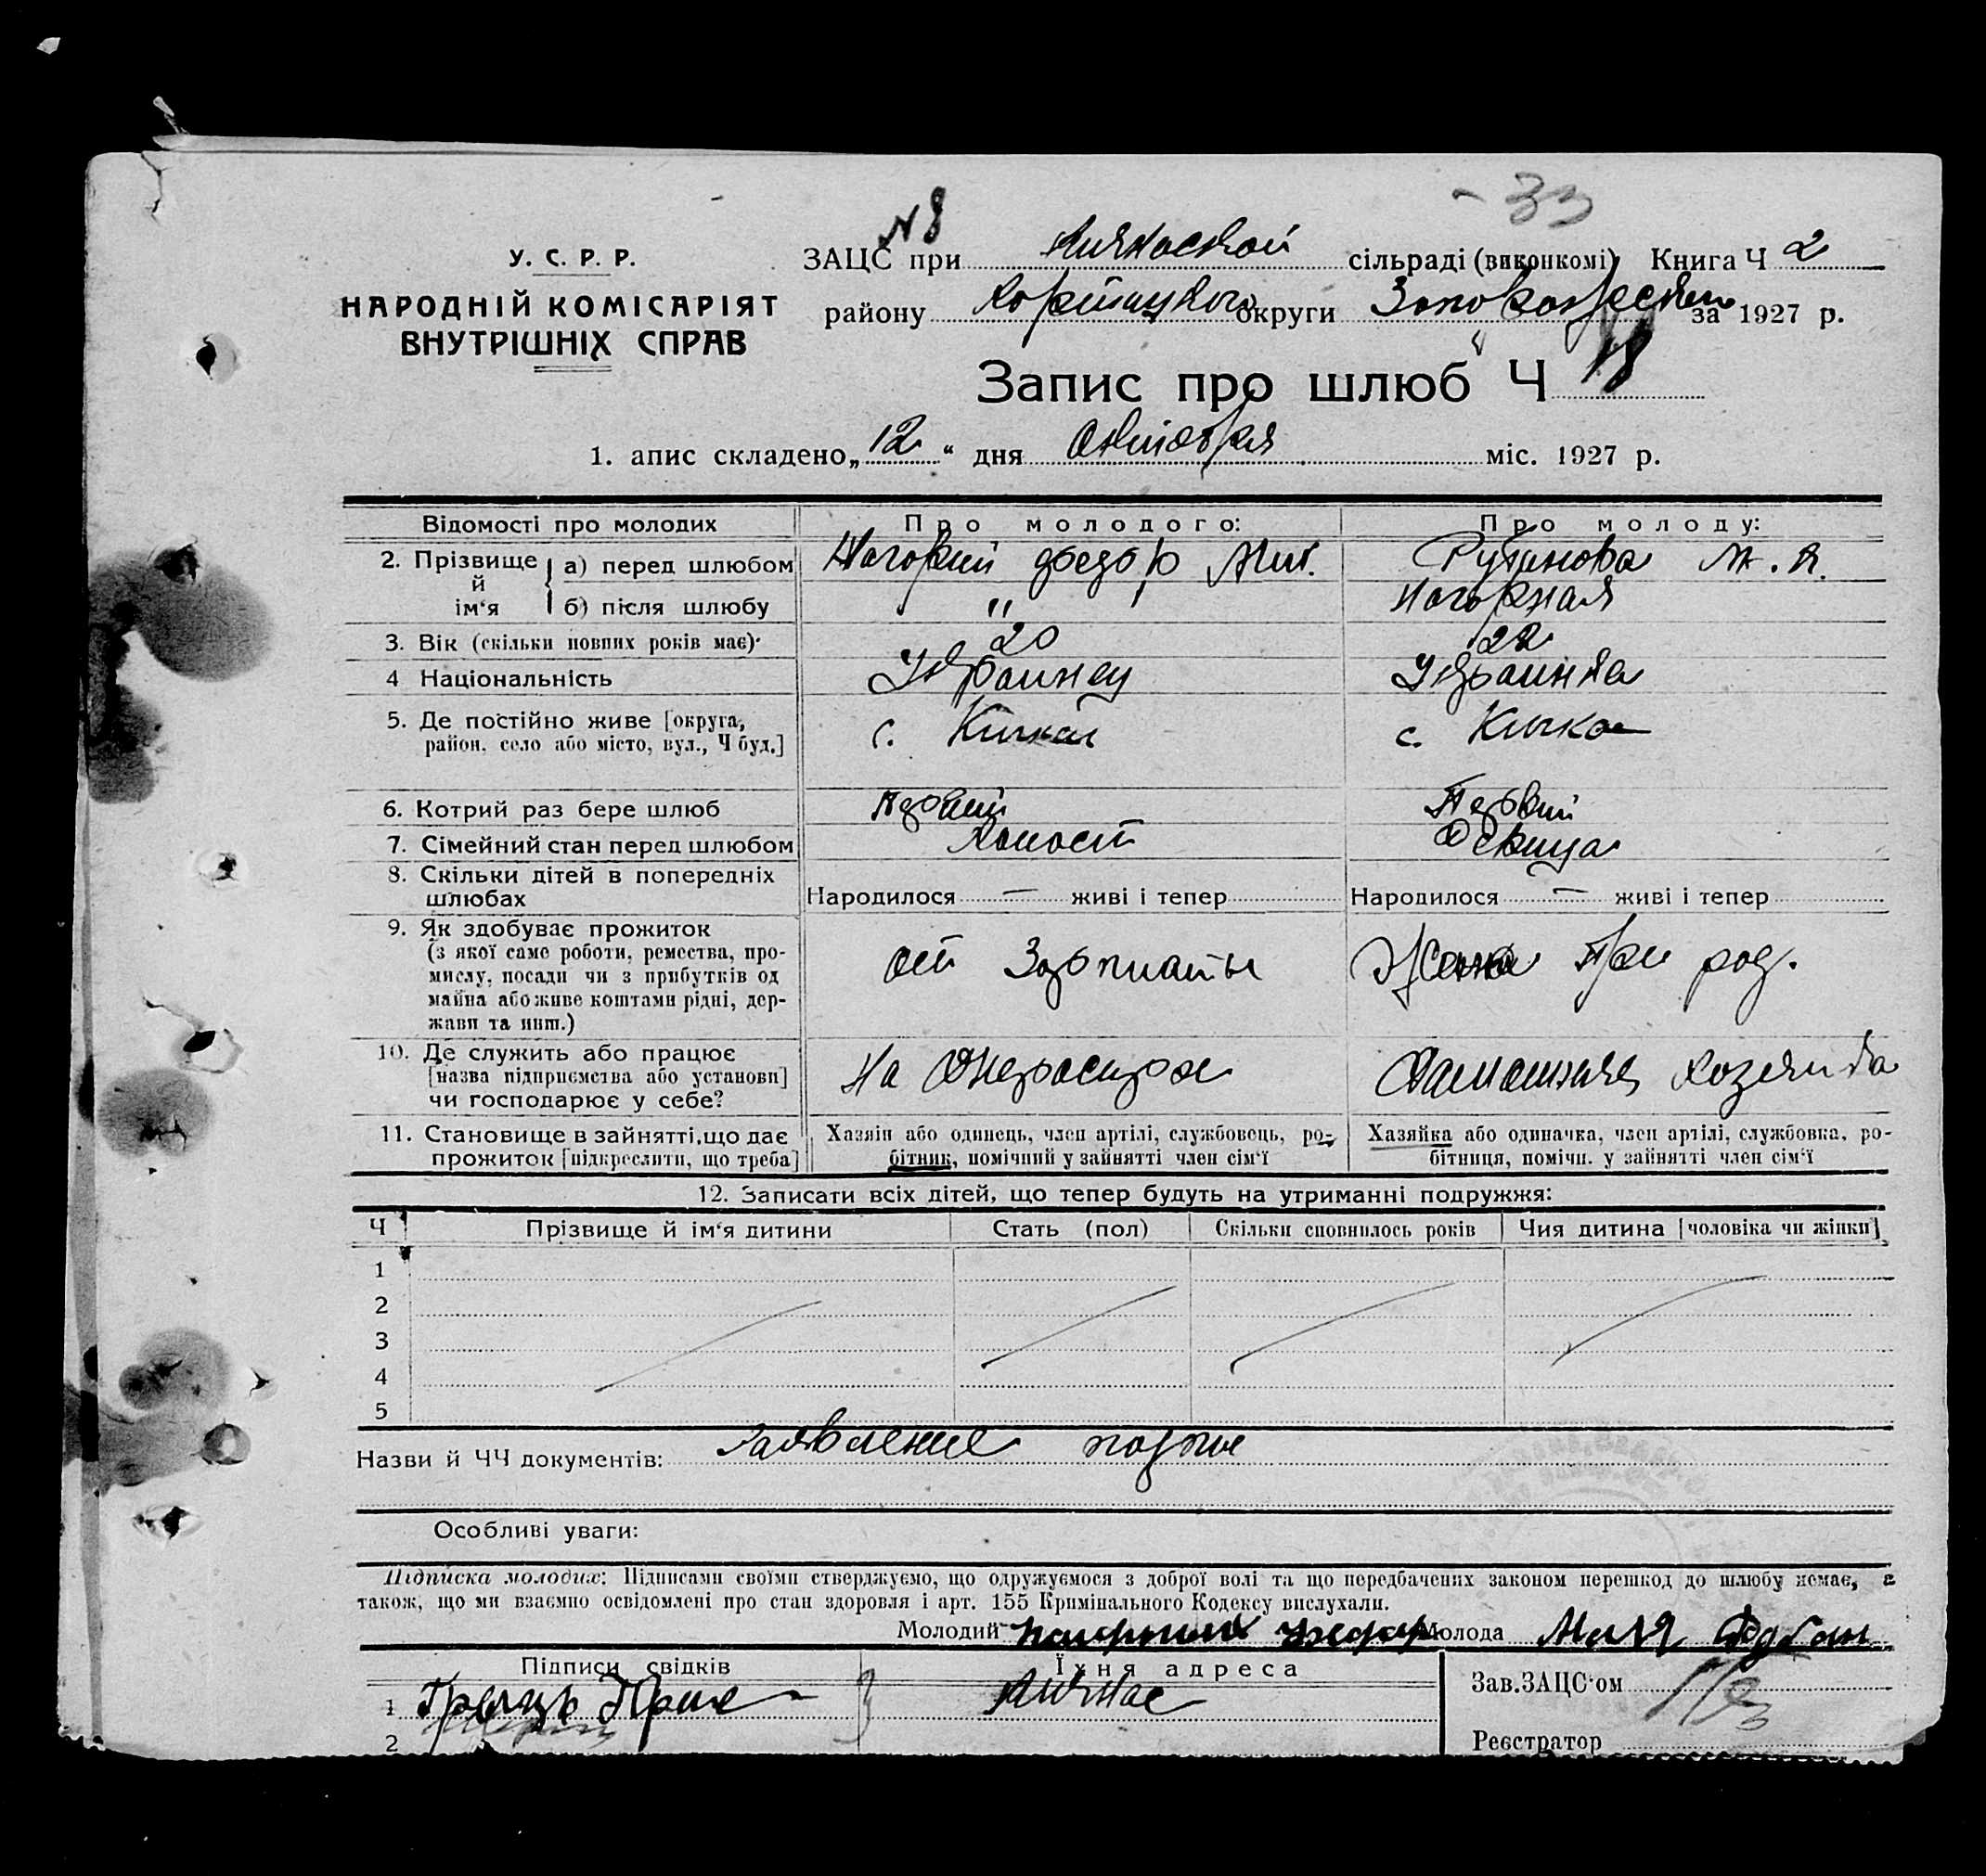 - 33
№ 8
У. С. Р. Р.
НАРОДНІЙ КОМІСАРІЯТ
ВНУТРІШНІХ СПРАВ
ЗАЦС при Кичкаской сільраді (виконкомі) Книга Ч 2
району Хортицкого округи за 1927 р.
Запис про шлюб Ч 18
1. апис складено „12“ дня Октября міс. 1927 р.
Відомості про молодих Про молодого: Про молоду:
2. Прізвище й ім‘я а) перед шлюбом Нагорний Федор Мих. М. Я.
б) після шлюбу " Нагорная
3. Вік (скільки повних років має) 20 22
4 Національність Украинец Украинка
5. Де постійно живе [округа, с. Кичкас с. Кичкас
район, село або місто, вул., Ч буд.]
6. Котрий раз бере шлюб Первий Первий
7. Сімейний стан перед шлюбом Холост Девица
8. Скільки дітей в попередніх
шлюбах Народилося — живі і тепер Народилося — живі і тепер
9. Як здобуває прожиток
(з якої саме роботи, ремества, про-
мислу, посади чи з прибутків од от Зарплаты при род.
майна або живе коштами рідні, дер-
жави та инш.)
10. Де служить або працює
[назва підприємства або установи] На Днепрострое Домашняя хозяйка
чи господарює у себе?
11. Становище в зайнятті, що дає Хазяїн або одинець, член артілі, службовець, ро- Хазяйка або одиначка, член артілі, службовка, ро-
прожиток [підкреслити, що треба] бітник, помічний у зайнятті член сім‘ї бітниця, помічн. у зайнятті член сім‘ї
12. Записати всіх дітей, що тепер будуть на утриманні подружжя:
Ч Прізвище й ім‘я дитини Стать (пол) Скільки сповнилось років Чия дитина [чоловіка чи жінки]
1
2
3
4
5
Назви й ЧЧ документів: Заявление
Особливі уваги:
Підписка молодих: Підписами своїми стверджуємо, що одружуємося з доброї волі та що передбачених законом перешкод до шлюбу немає, а
також, що ми взаємно освідомлені про стан здоровля і арт. 155 Кримінального Кодексу вислухали.
Молодий Молода
Підписи свідків Їхня адреса
Зав.ЗАЦС‘ом
1 Кичкас
2
Реєстратор